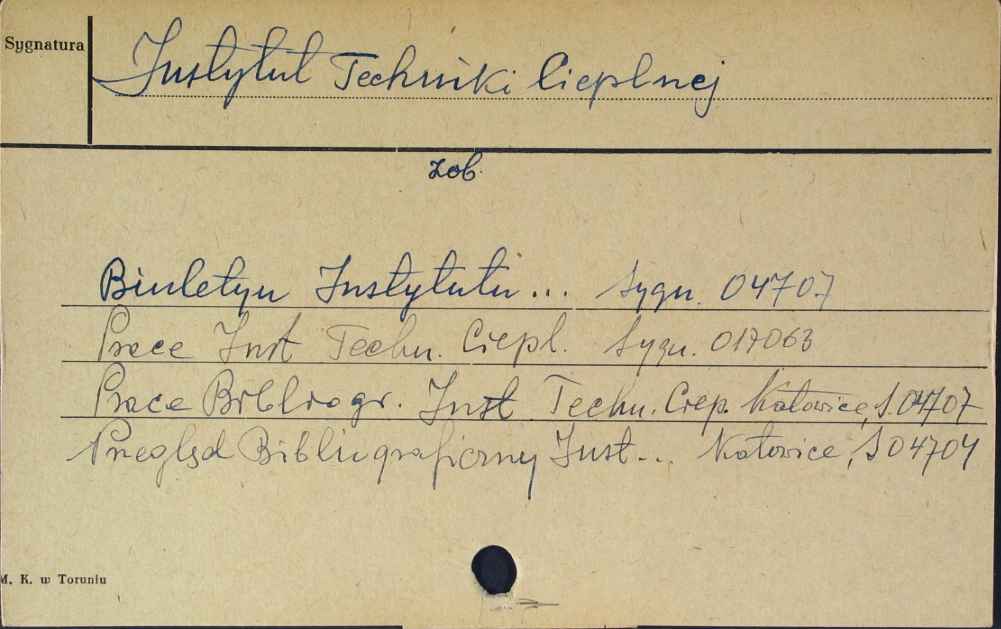 Sygnatura
Instytut Techniki Cieplnej
zob.
Biuletyn Instytutu ... Sygn. 04707
Prace Inst Techn. Ciepl. Sygn. 017063
Prace Bibliogr. Inst Techn. Ciep. Katowice, S.04707
Przegląd Bibliograficzny Inst... Katowice, S 04704
M. K. w Toruniu